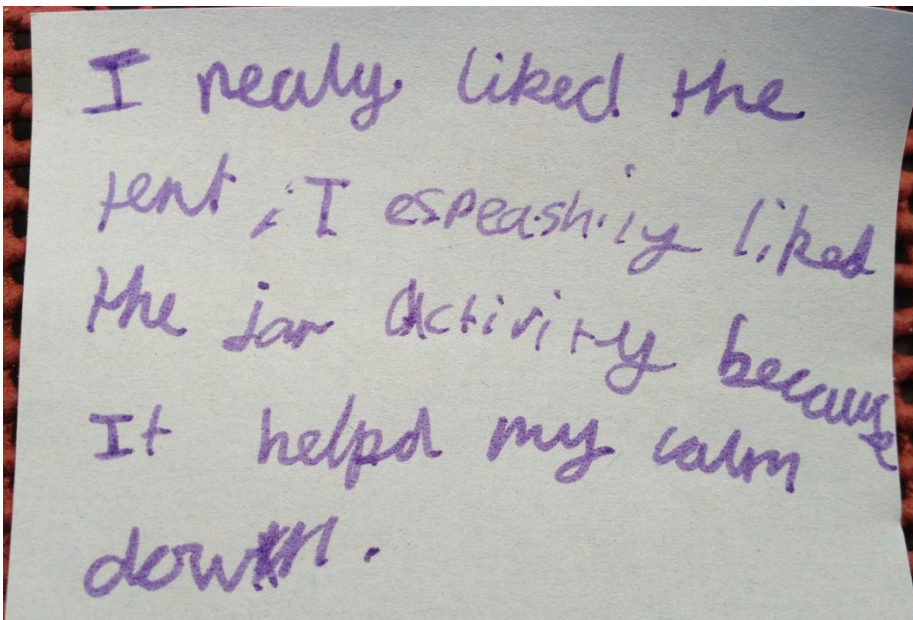 I realy liked the
tent, I espeashily liked
the jar activity because
It helpd my calm
down.